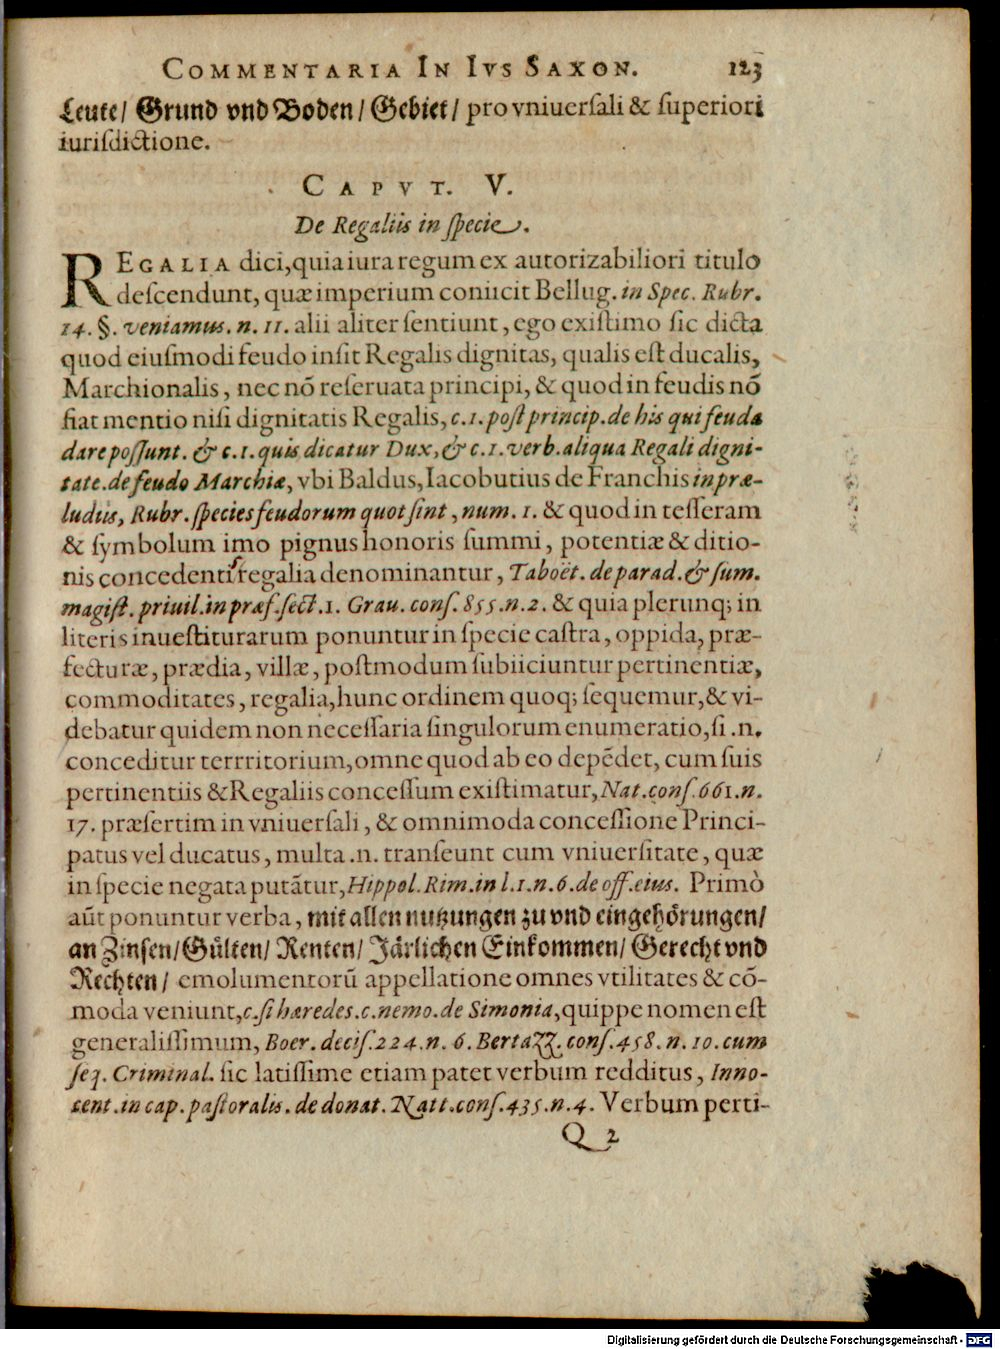 COMMENTARIA IN IVS SAXON. 123
Leute/ Grund vnd Boden/ Gebiet/ pro vniuersali & superiori
iurisdictione.
CAPVT. V.
De Regaliis in specie.
REGALIA dici, quia iura regum ex autorizabiliori titulo
descendunt, quæ imperium coniicit Bellug. in Spec. Rubr.
14. §. veniamus. n. 11. alii aliter sentiunt, ego existimo sic dicta
quod eiusmodi feudo insit Regalis dignitas, qualis est ducalis,
Marchionalis, nec nõ reseruata principi, & quod in feudis nõ
fiat mentio nisi dignitatis Regalis, c. 1. post princip. de his qui feuda
dare possunt. & c. 1. quis dicatur Dux, & c. 1. verb. aliqua Regali digni-
tate. de feudo Marchiæ, vbi Baldus, Iacobutius de Franchis in præ-
ludiis, Rubr. species feudorum quot sint, num. 1. & quod in tesseram
& symbolum imo pignus honoris summi, potentiæ & ditio-
nis concedentis regalia denominantur, Taboët. de parad. & sum.
magist. priuil. in præf. sect. 1. Grau. cons. 855. n. 2. & quia plerunq; in
literis inuestiturarum ponuntur in specie castra, oppida, præ-
fecturæ, prædia, villæ, postmodum subiiciuntur pertinentiæ,
commoditates, regalia, hunc ordinem quoq; sequemur, & vi-
debatur quidem non necessaria singulorum enumeratio, si .n.
conceditur terrritorium, omne quod ab eo depẽdet, cum suis
pertinentiis & Regaliis concessum existimatur, Nat. cons. 661. n.
17. præsertim in vniuersali, & omnimoda concessione Princi-
patus vel ducatus, multa .n. transeunt cum vniuersitate, quæ
in specie negata putãtur, Hippol. Rim. in l. 1. n. 6. de off. eius. Primò
aũt ponuntur verba, mit allen nutzungen zu vnd eingehörungen/
an Zinsen/ Gülten/ Renten/ Järlichen Einkommen/ Gerecht vnd
Rechten/ emolumentorũ appellatione omnes vtilitates & cõ-
moda veniunt, c. si hæredes. c. nemo. de Simonia, quippe nomen est
generalissimum, Boer. decis. 224. n. 6. Bertazz. cons. 458. n. 10. cum
seq. Criminal. sic latissime etiam patet verbum redditus, Inno-
cent. in cap. pastoralis. de donat. Natt. cons. 435. n. 4. Verbum perti-
Q 2
Digitalisierung gefördert durch die Deutsche Forschungsgemeinschaft - DFG